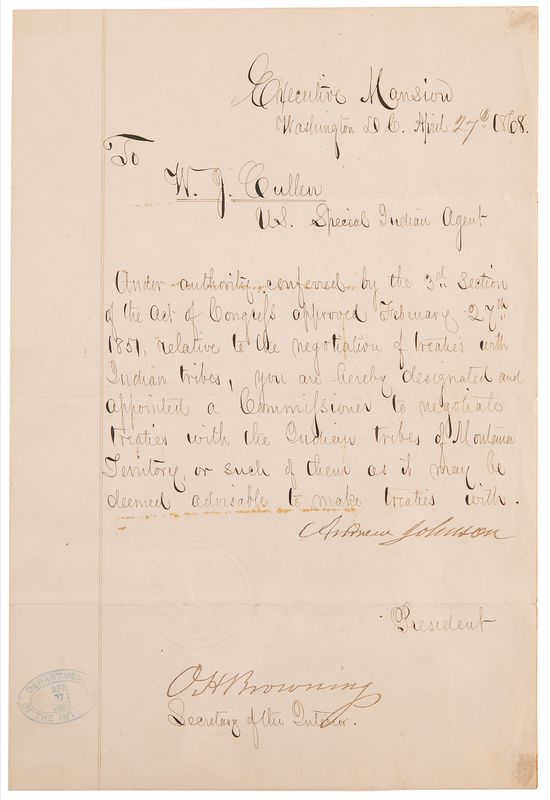 Executive Mansion
Washington D.C. April 27th 1868.
To
W. J. Cullen
U.S. Special Indian Agent
Under authority conferred by the 3d Section
of the Act of Congress approved February 27th
1851, relative to the negotiation of treaties with
Indian tribes, you are hereby designated and
appointed a Commissioner to negotiate
treaties with the Indian tribes of Montana
Territory, or such of them as it may be
deemed advisable to make treaties with.
Andrew Johnson
President
O H Browning
Secretary of the Interior.
DEPARTMENT
APR
27
OF THE INT